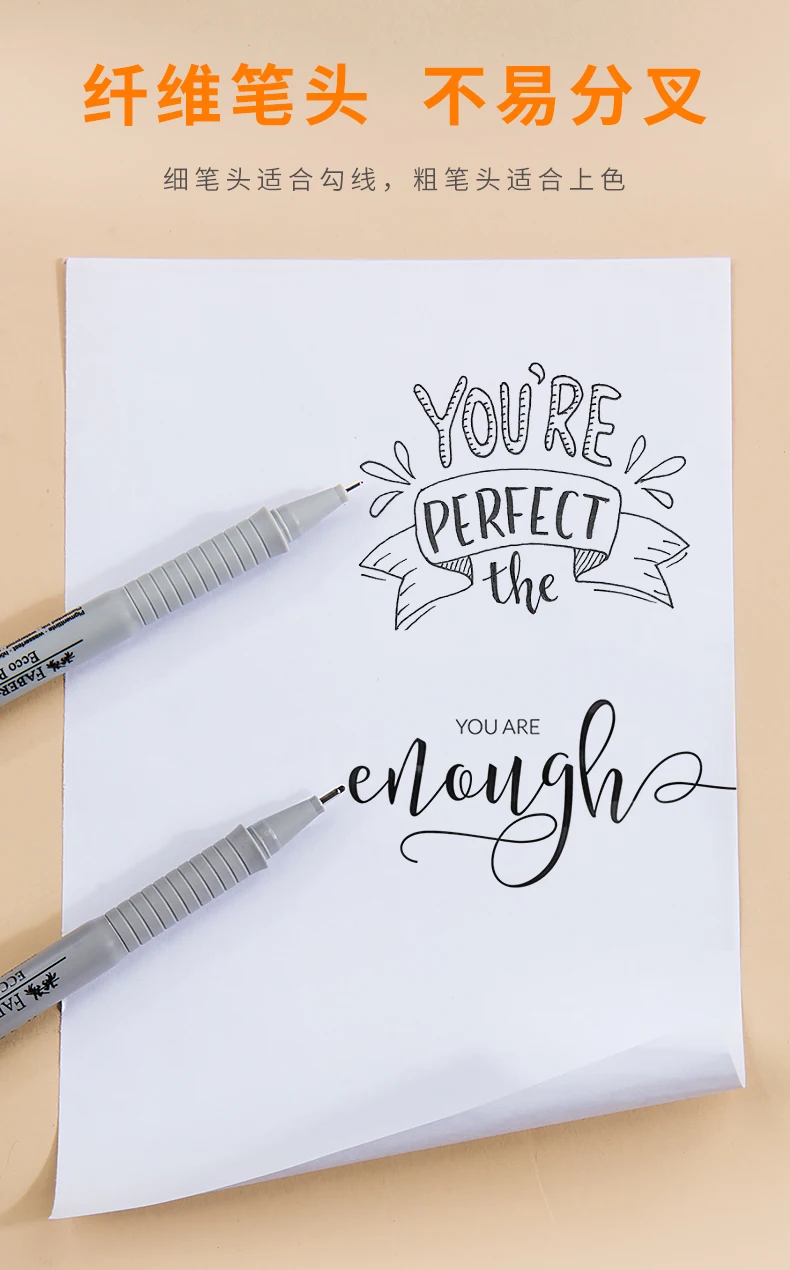 纤维笔头 不易分叉
细笔头适合勾线，粗笔头适合上色
YOU'RE
PERFECT
the
YOU ARE
enough
Pigmentliner · wasserfest
ECCO
FABER
ECC
FA